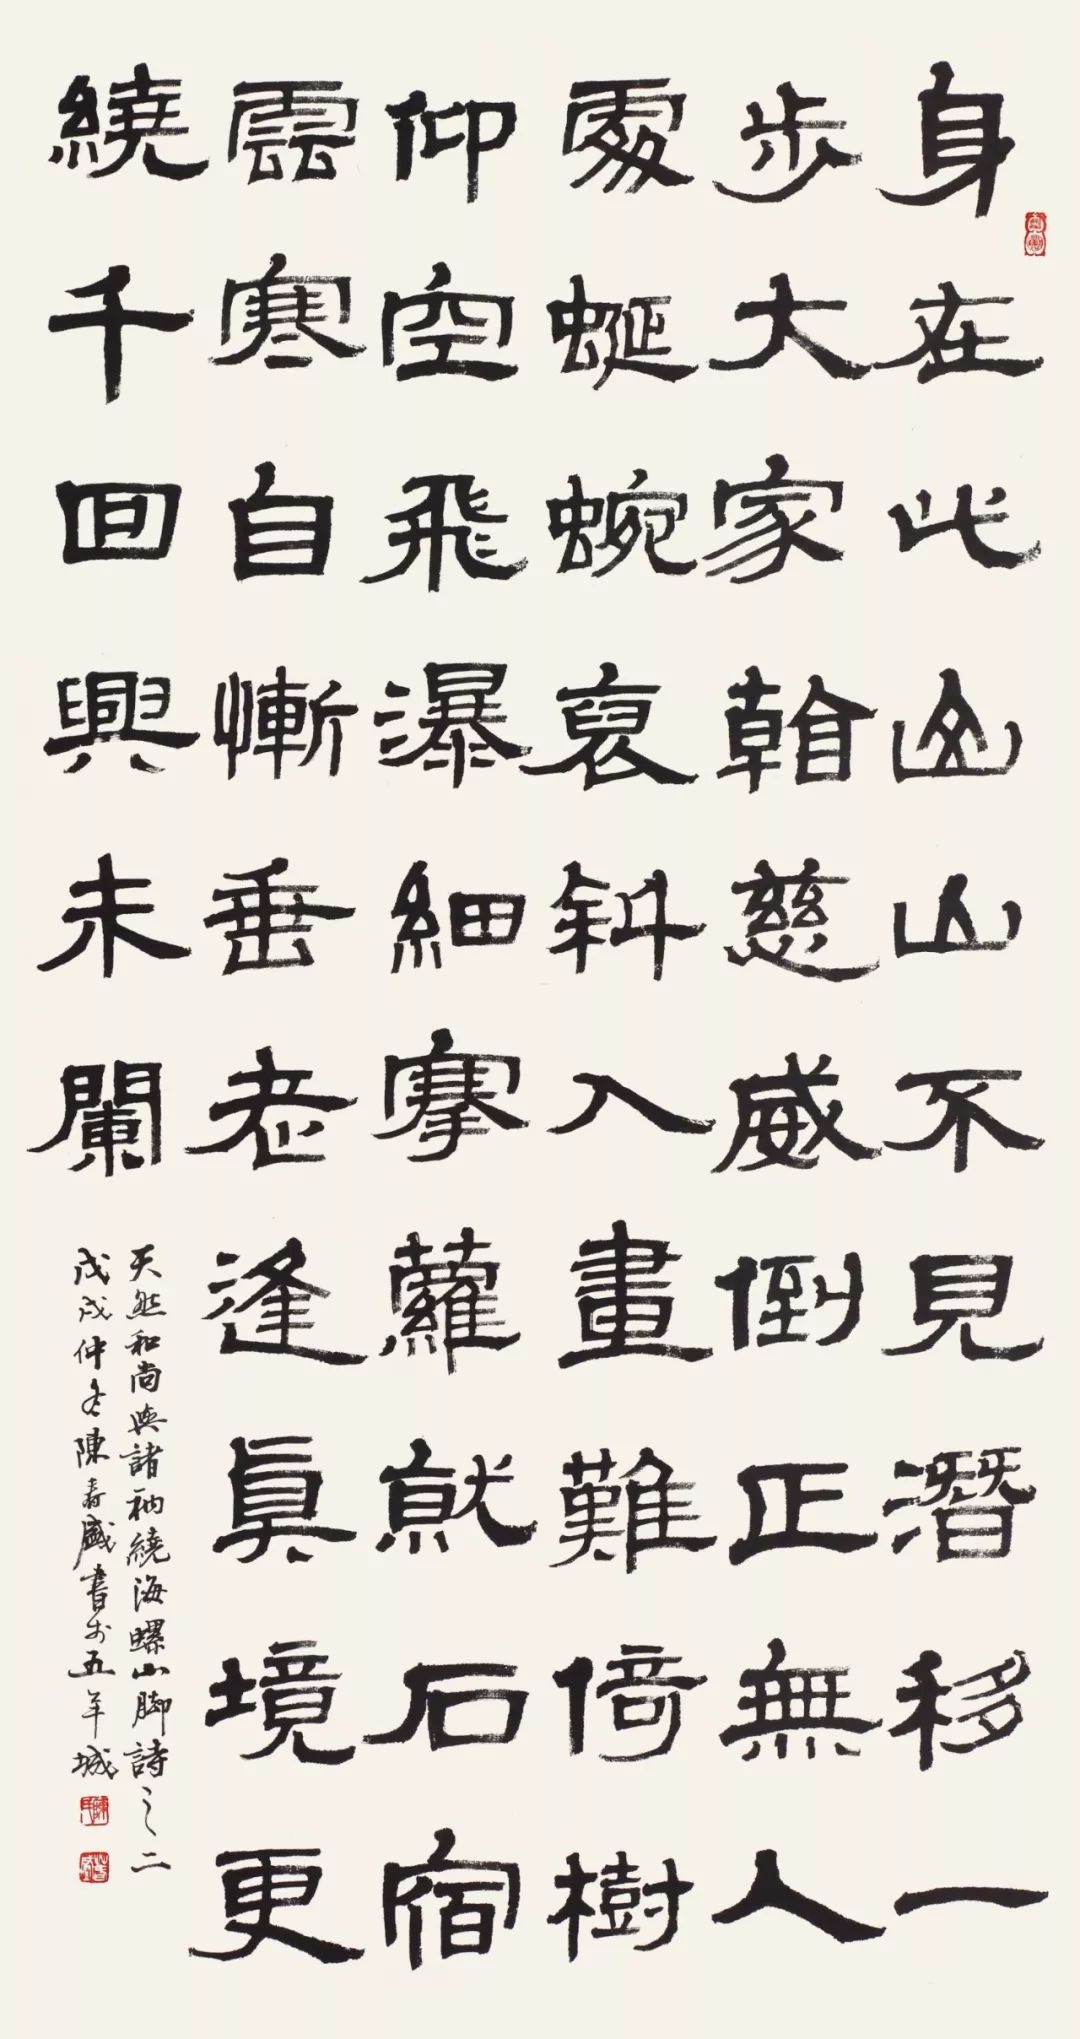 身在此山山不見潛移一
步大家看慈威倒正無人
處蜒蜿裒斜入畫難倚樹
仰空飛瀑細搴蘿就石宿
雲寒自慚垂老逢真境更
繞千回興未闌
天然和尚與諸衲繞海螺山腳詩之二
戊戌仲冬陳春盛書於五羊城